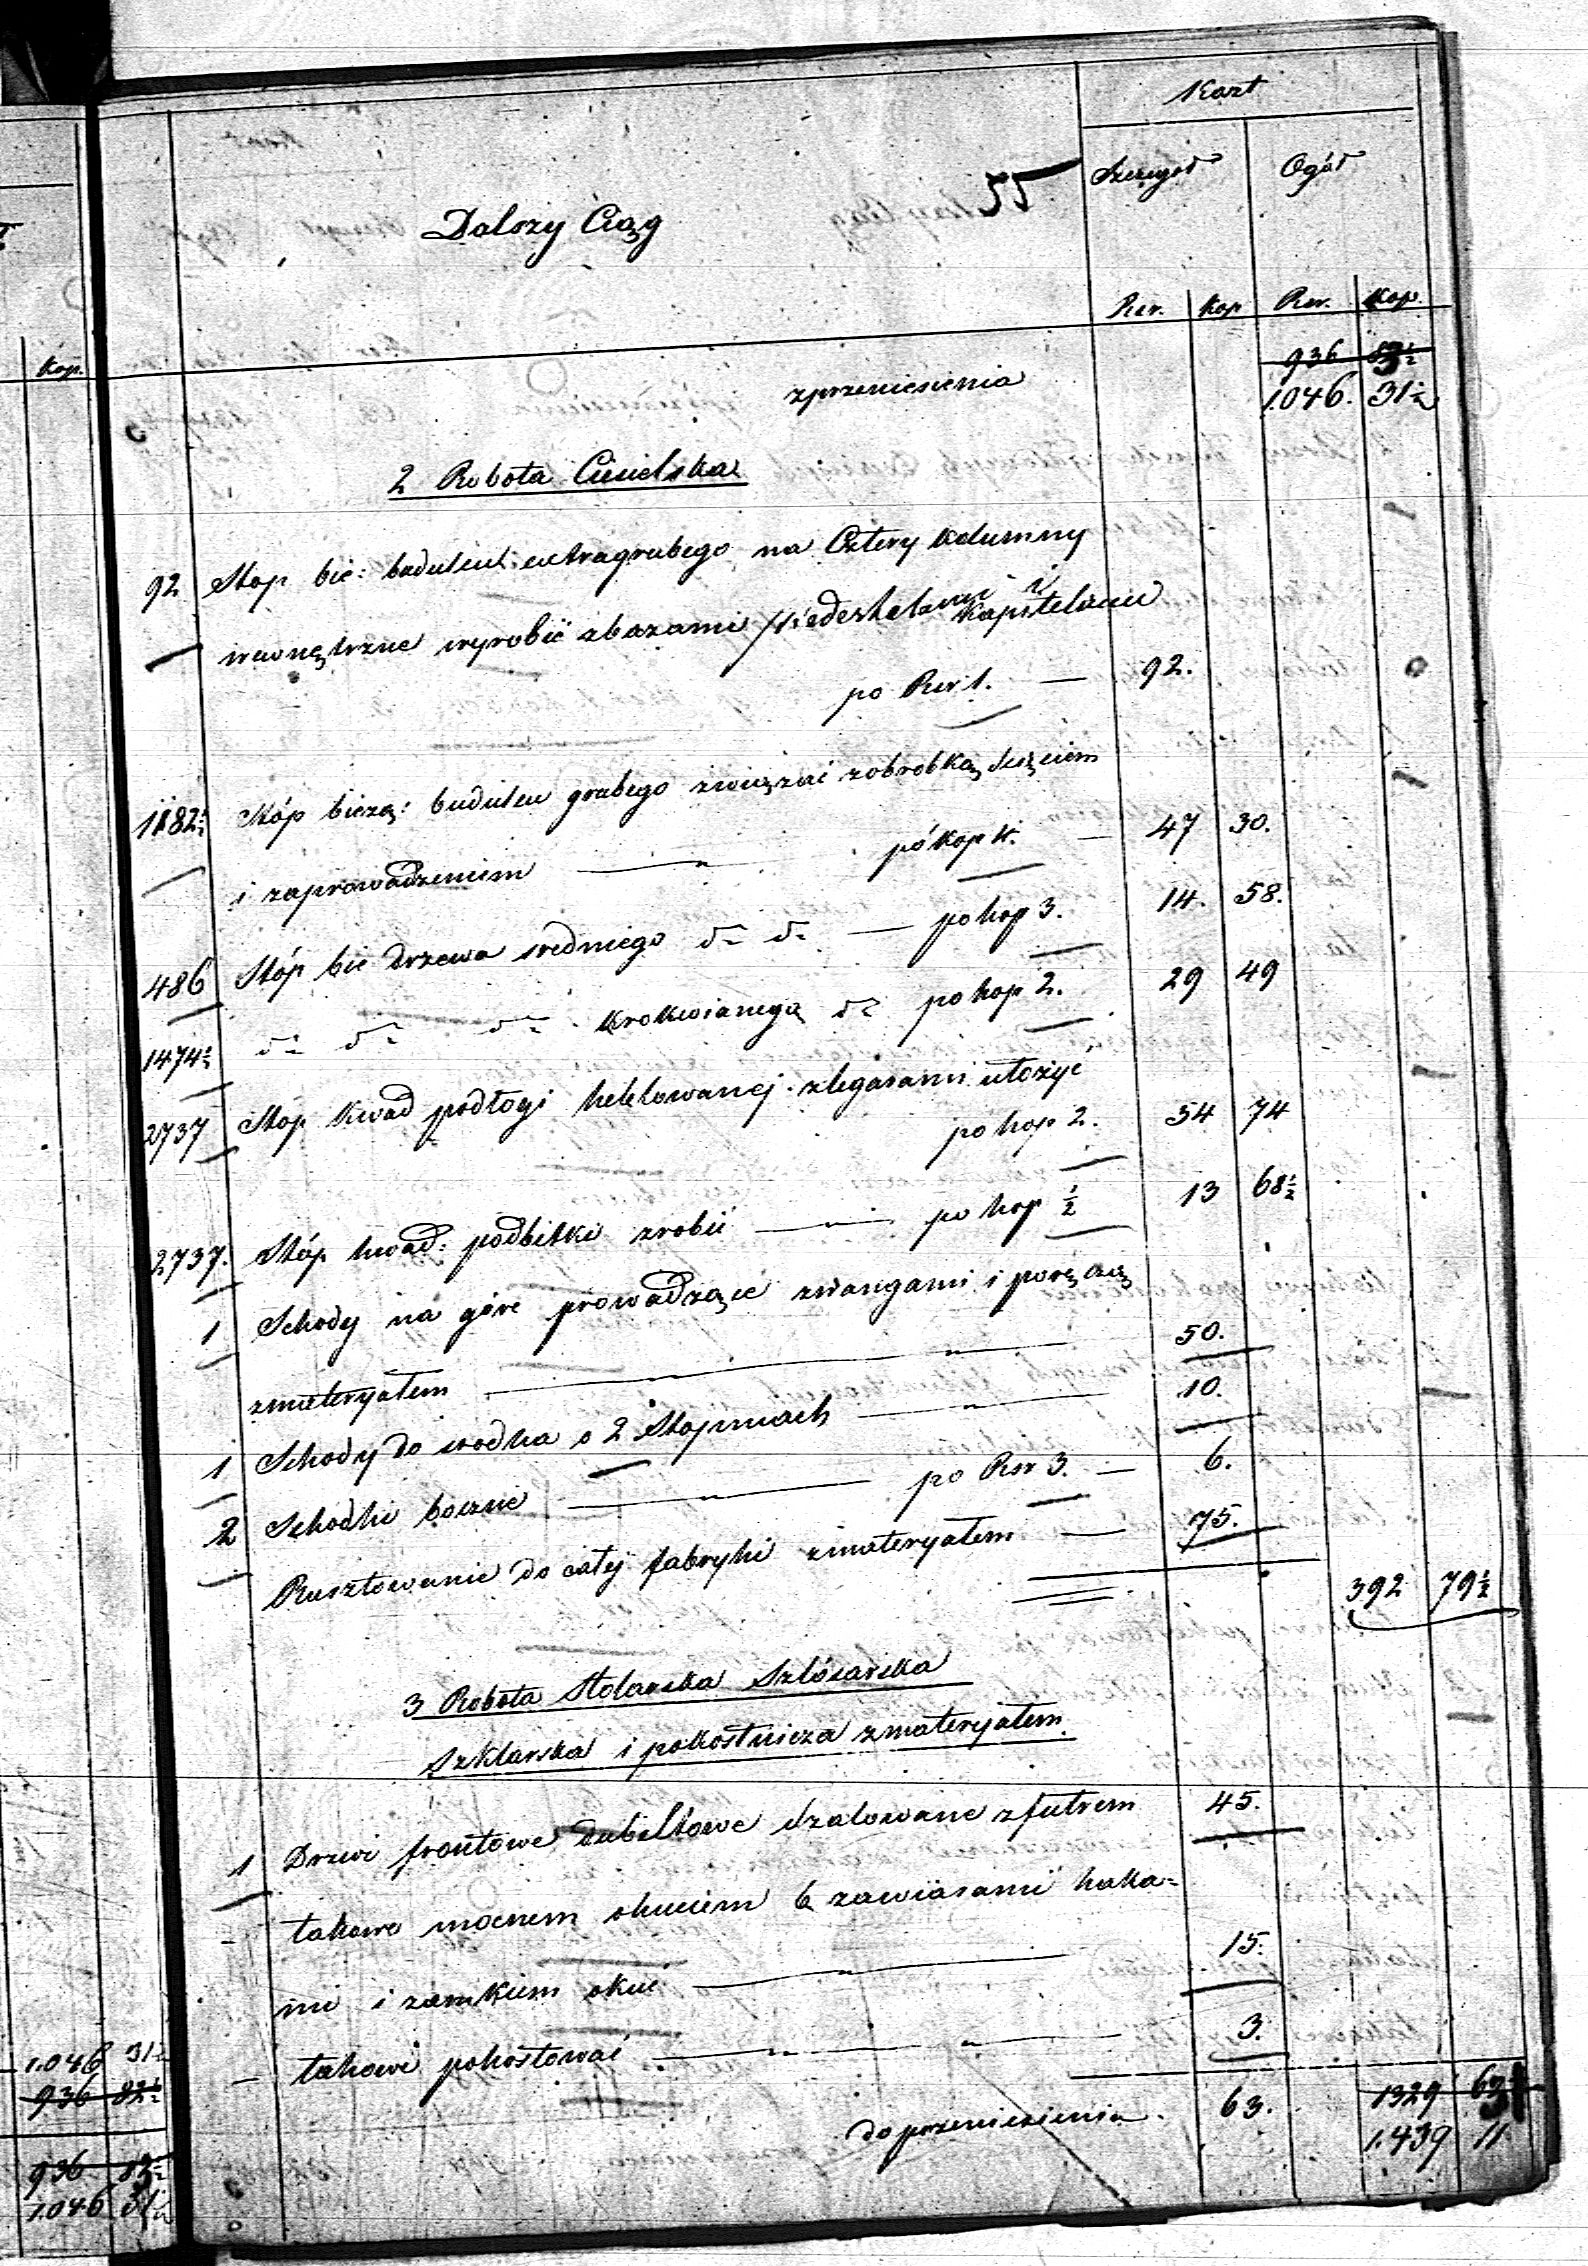 Koszt
55
Szczegół Ogół
Dalszy Ciąg
Rsr. Kop Rsr. Kop.
Kop.
936
zprzeniesienia 1.046. 31½
2 Robota Ciesielska
92 Stop bie: budulcu extragrubego na Cztery Kolumny
wewnętrzne wyrobić zbazami Piedestałami i Kapitelami
po Rsr 1. — 92.
1182½ Stóp bieżą: budulcu grubego związać zobrobką ścięciem
i zaprowadzeniem — „ — po kop 4. — 47 30.
486 Stóp bie drzewa średniego do do — po kop 3. 14. 58.
1474½ do do do krokwianego do po kop 2. 29 49
2737 Stóp kwad podłogi heblowanej zlegarami ułożyć
po kop 2. 54 74
2737. Stóp kwad: podbitki zrobić — „ — po kop ½ 13 68½
1 Schody na górę prowadzące zwangami i poręczą
zmateryałem — „ — „ — 50.
1 Schody do środka o 2 Stopniach — „ — 10.
2 Schodki boczne — „ — po Rsr 3. — 6.
Rusztowanie do całej fabryki zmateryałem — 75.
392 79½
3 Robota Stolarska Szlósarska
Szklarska i pokostnicza zmateryałem.
1 Drzwi frontowe dubeltowe szalowane zfutrem 45.
– takowe mocnem okuciem 6 zawiasami haka=
mi i zamkiem okuć — „ — 15.
– takowe pokostować — „ — „ — 3.
1329 63
do przeniesienia. 63. 1.439 11
1.046 31½
936 82½
936 82½
1.046 31½